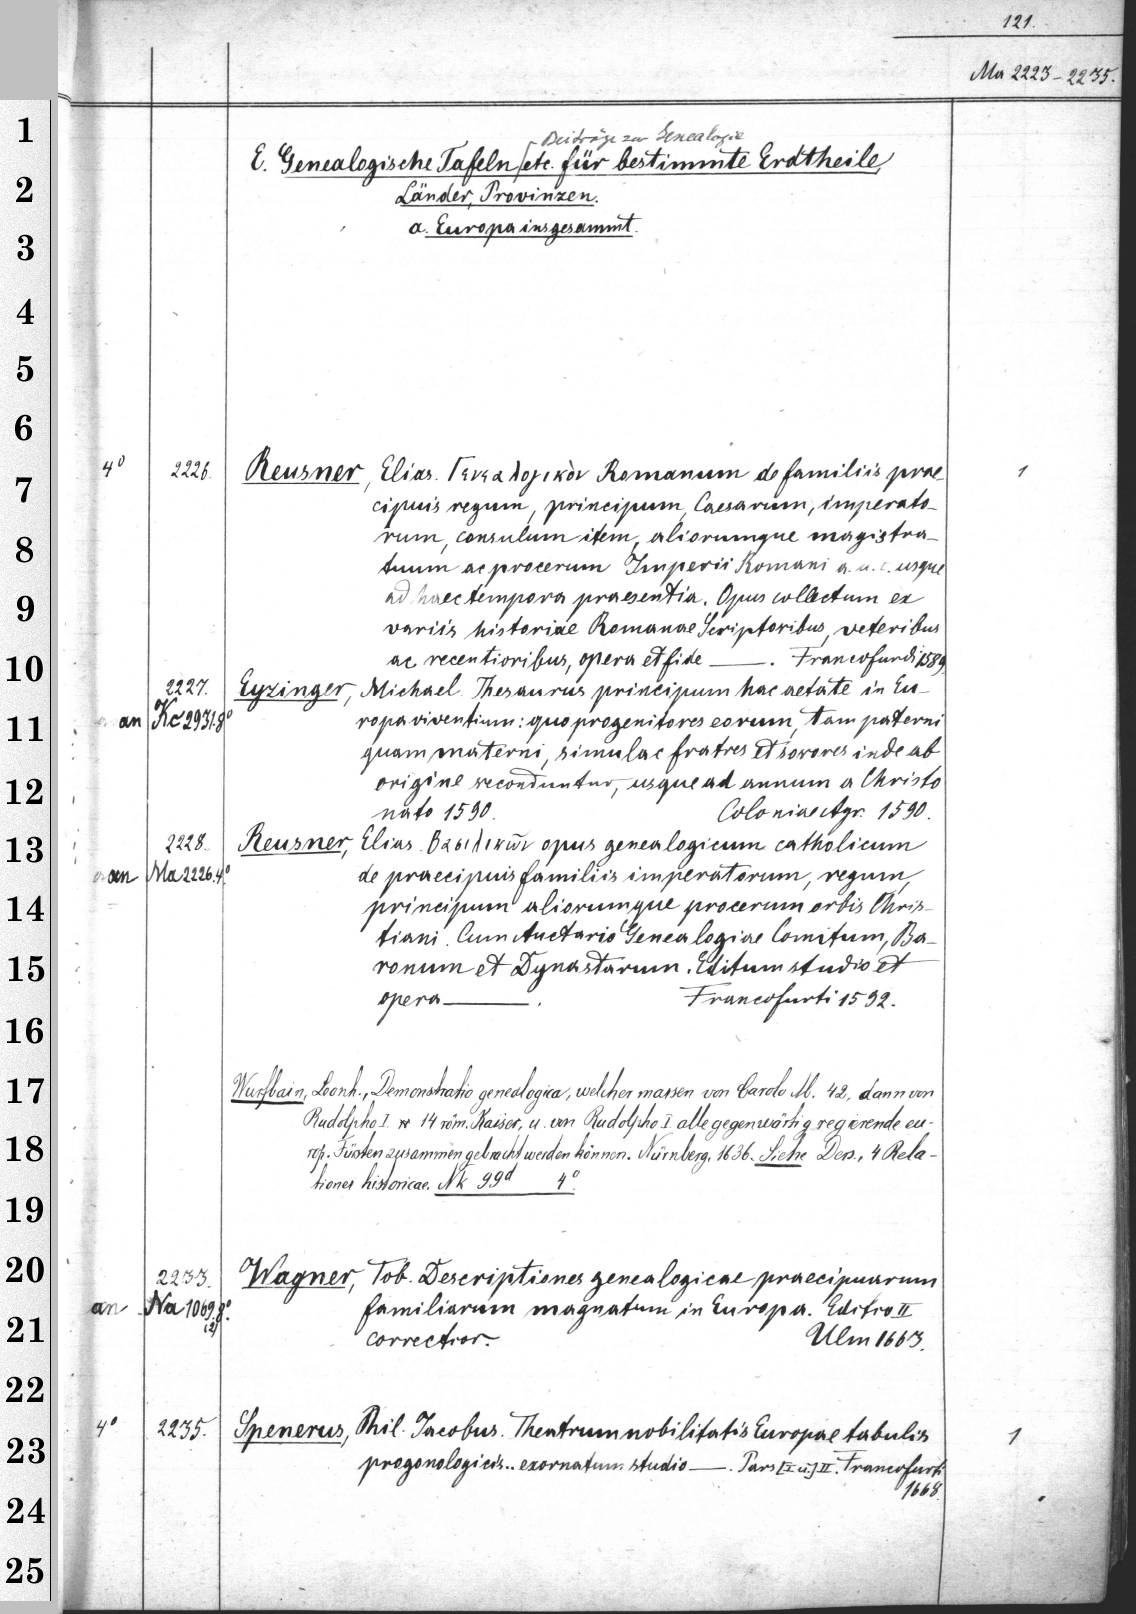 121.
Ma 2223-2235.
Beiträge zur Genealogie
E. Genealogische Tafeln [etc. für bestimmte Erdtheile,
Länder, Provinzen.
a. Europa insgesammt.
4° 2226. Reusner, Elias. Γενεαλογικὸν Romanum de familiis prae- 1
cipuis regum, principum, Caesarum, imperato-
rum, consulum item, aliorumque magistra-
tuum ac procerum Imperii Romani a. u. c. usque
ad haec tempora praesentia. Opus collectum ex
variis historiae Romanae Scriptoribus, veteribus
ac recentioribus, opera et fide —. Francofurdi 1589.
2227. Eyzinger, Michael. Thesaurus principum hac aetate in Eu-
an Kc 2931.8° ropa viventium: quo progenitores eorum, tam paterni
quam materni, simulac fratres et sorores inde ab
origine reconduntur, usque ad annum a Christo
nato 1590. Coloniae Agr. 1590.
2228. Reusner, Elias. Βασιλικῶν opus genealogicum catholicum
an Ma 2226.4° de praecipuis familiis imperatorum, regum,
principum aliorumque procerum orbis Chris-
tiani. Cum Auctario Genealogiae Comitum, Ba-
ronum et Dynastarum. Editum studio et
opera —. Francofurti 1592.
Wurfbain, Leonh., Demonstratio genealogica, welcher massen von Carolo M. 42, dann von
Rudolpho I. 14 röm. Kaiser, u. von Rudolpho I alle gegenwärtig regierende eu-
rop. Fürsten zusammen gebracht werden können. Nürnberg, 1636. Siehe Ders., 4 Rela-
tiones historicae. Nk 99d 4°.
2233. Wagner, Tob. Descriptiones genealogicae praecipuarum
an Na 1069.8° familiarum magnatum in Europa. Editio II
(2)
correctior. Ulm 1663.
4° 2235. Spenerus, Phil. Jacobus. Theatrum nobilitatis Europae tabulis 1
progonologicis.. exornatum studio —. Pars [I u.] II. Francofurti
1668.
1
2
3
4
5
6
7
8
9
10
11
12
13
14
15
16
17
18
19
20
21
22
23
24
25